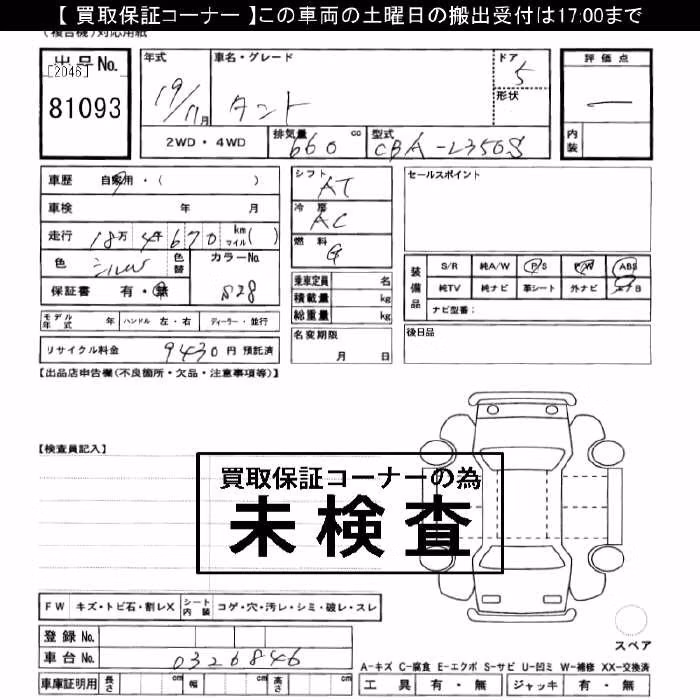 【 買取保証コーナー 】この車両の土曜日の搬出受付は17:00まで
(複合機)対応用紙
出品No.
[2046]
81093
年式
19/11月
車名・グレード
タント
ドア
5
形状
評価点
—
内装
2WD・4WD
排気量 660 cc
型式 CBA-L350S
車歴 自家用・( )
車検 年 月
走行 18万4千670 km マイル( )
色 シルバー
色替
カラーNo. S28
保証書 有・無
シフト AT
冷房 AC
燃料 G
乗車定員 名
積載量 kg
総重量 kg
セールスポイント
装備品
S/R 純A/W P/S P/W ABS
純TV 純ナビ 革シート 外ナビ エアB
ナビ型番:
モデル年式 年 ハンドル 左・右 ディーラー・並行
名変期限
月 日
後日品
リサイクル料金 9430 円 預託済
【出品店申告欄(不良箇所・欠品・注意事項等)】
【検査員記入】
買取保証コーナーの為
未検査
FW キズ・トビ石・割レX シート内装 コゲ・穴・汚レ・シミ・破レ・スレ
登録No.
車台No. 0326846
車庫証明用 長さ cm 幅 cm 高さ cm
スペア
A-キズ C-腐食 E-エクボ S-サビ U-凹ミ W-補修 XX-交換済
工具 有・無 ジャッキ 有・無